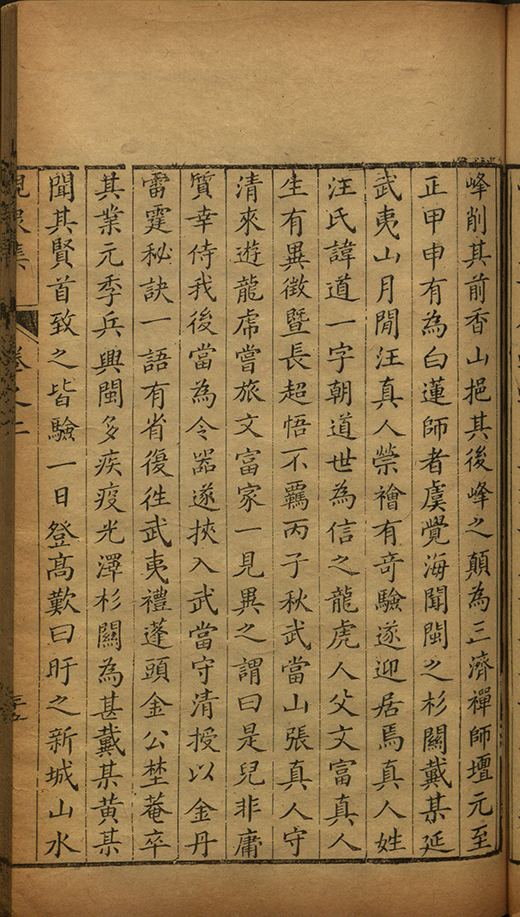 峰削其前香山挹其後峰之顛為三濟禪師壇元至
正甲申有為白蓮師者虞覺海聞閩之杉關戴某延
武夷山月閒汪真人崇禬有竒驗遂迎居焉真人姓
汪氏諱道一字朝道世為信之龍虎人父文富真人
生有異徴暨長超悟不羈丙子秋武當山張真人守
清來遊龍虎嘗旅文富家一見異之謂曰是兒非庸
質幸侍我後當為令器遂挾入武當守清授以金丹
雷霆秘訣一語有省復徃武夷禮蓬頭金公埜菴卒
其業元季兵興閩多疾疫光澤杉關為甚戴某黄某
聞其賢首致之皆驗一日登高歎曰盱之新城山水
峴泉集
卷之二